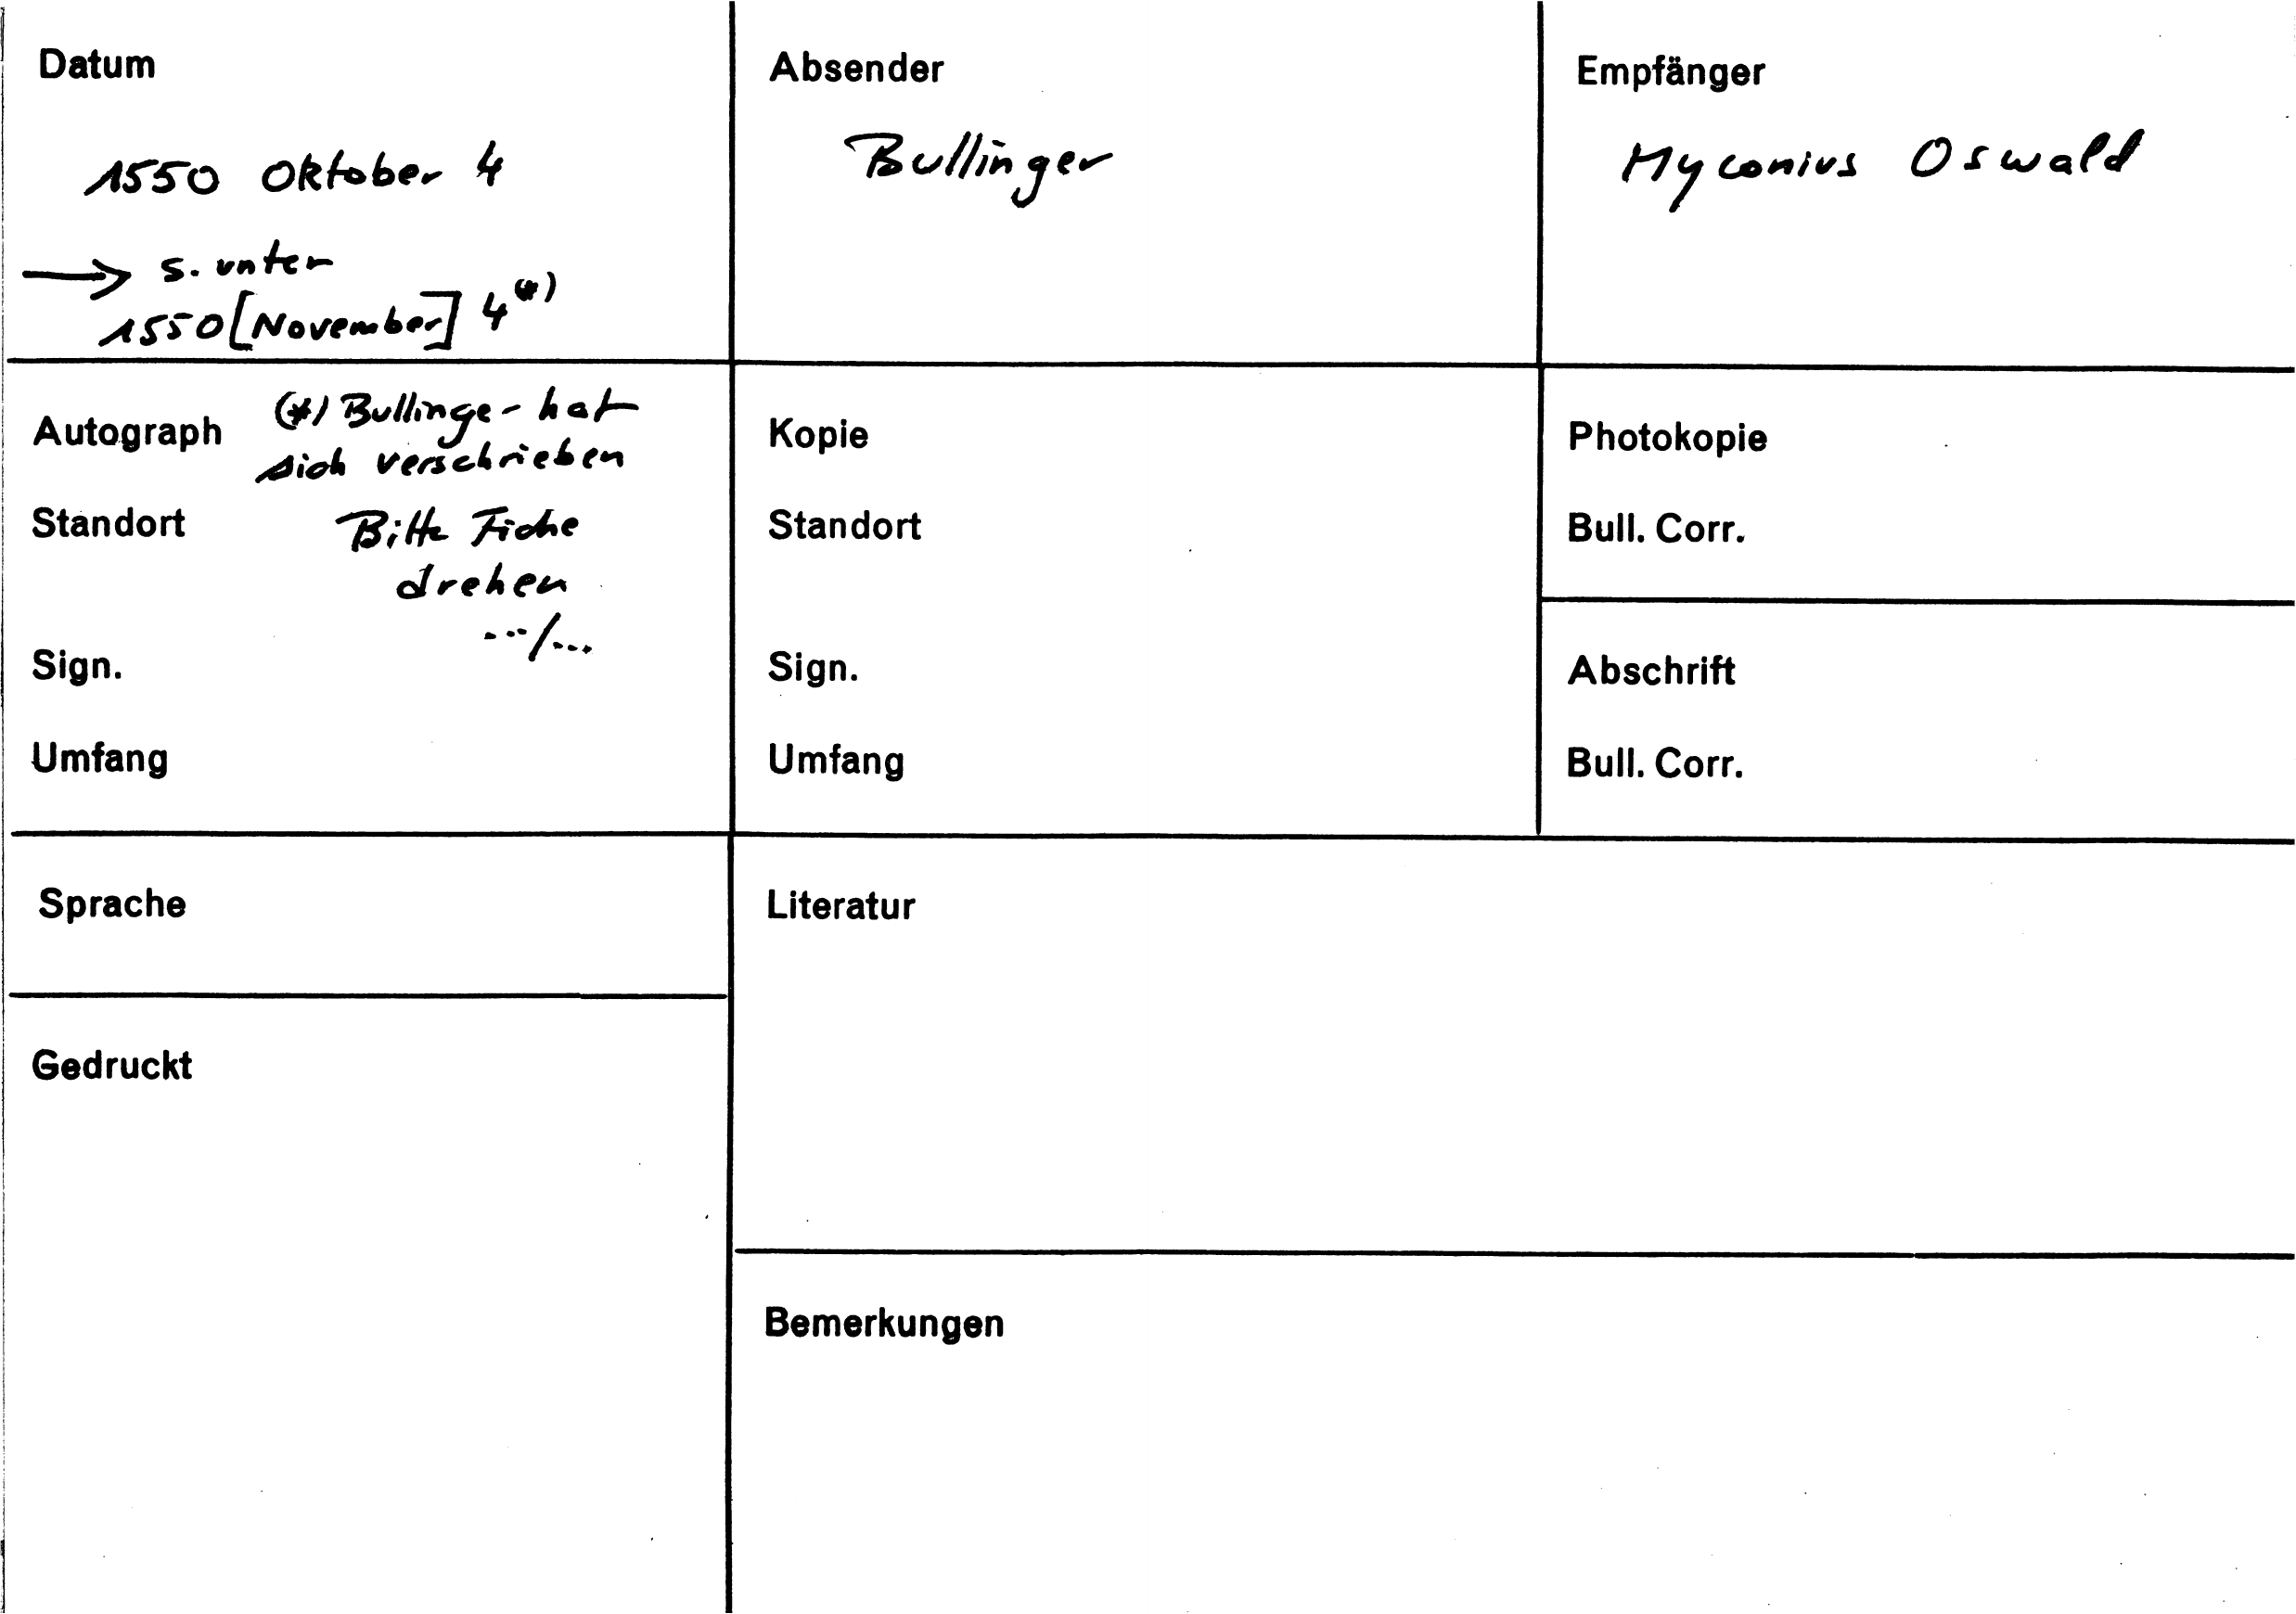 Datum
1550 Oktober 4
→ s. unter
1550 [November] 4 (*)
Absender
Bullinger
Empfänger
Myconius Oswald
Autograph
(*) Bullinger hat
sich verschrieben
Standort
Bitte Fiche
drehen
.../...
Sign.
Umfang
Kopie
Standort
Sign.
Umfang
Photokopie
Bull. Corr.
Abschrift
Bull. Corr.
Sprache
Gedruckt
Literatur
Bemerkungen